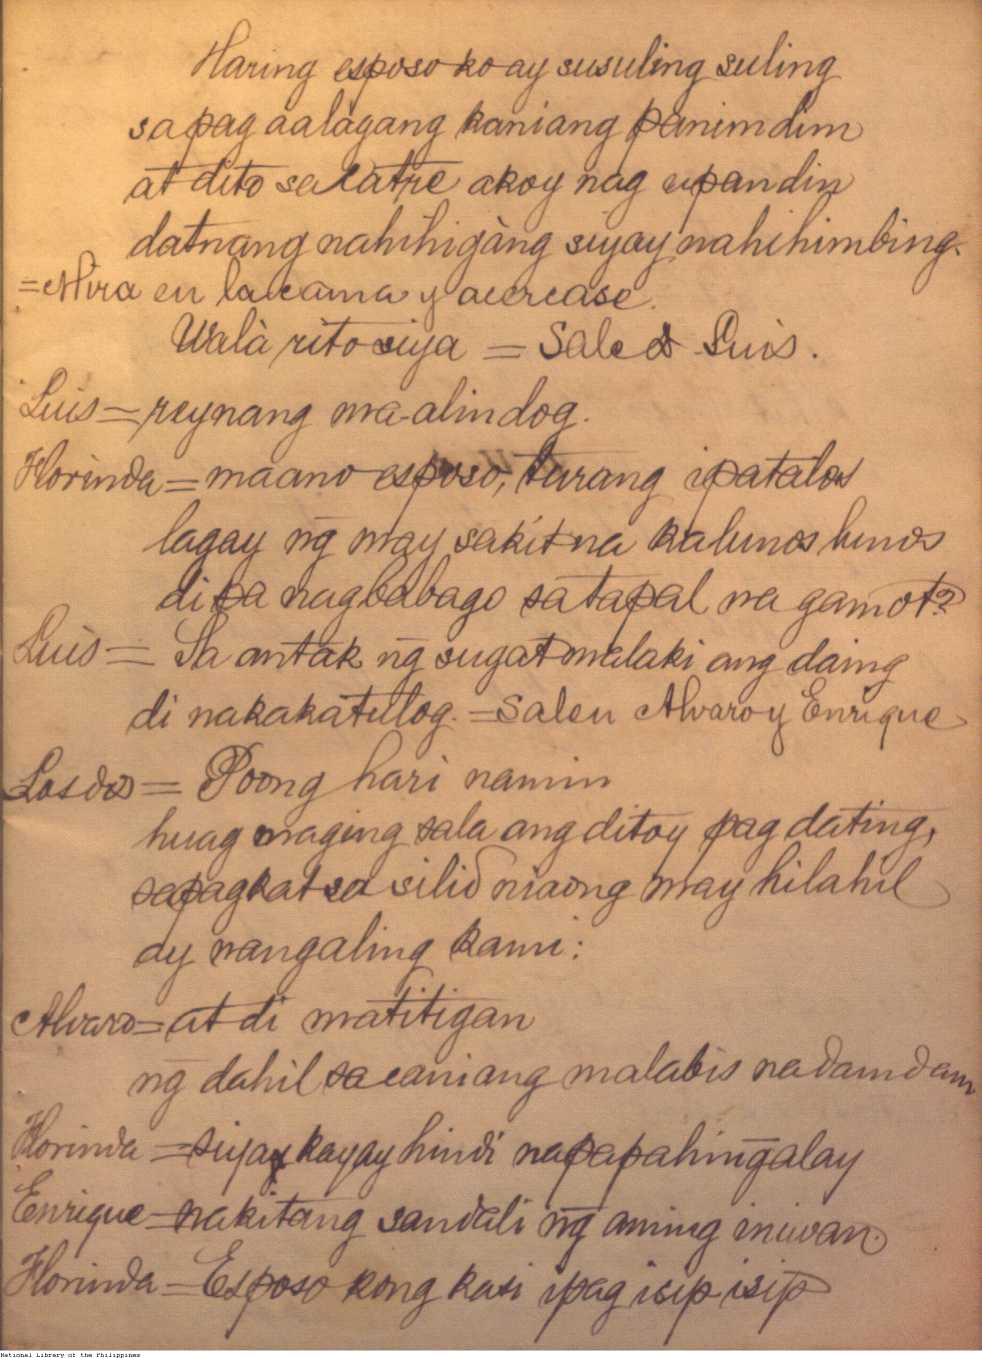 Haring esposo ko ay susuling suling
sa pag aalagang kaniang panimdim
at dito sa catre akoy nag upandin
datnang nahihigàng siyay nahihimbing.
=Mira en la cama y acercase.
Walà rito siya = Sale D Luis.
Luis = reynang ma-alindog.
Florinda = maano esposo, turang ipatalos
lagay n̄g may sakit na kalunos lunos
di pa nagbabago sa tapal na gamot?
Luis = Sa antak n̄g sugat malaki ang daing
di nakakatulog. = Salen Alvaro y Enrique
Los dos = Poong hari namin
huag maging sala ang ditoy pag dating,
sapagkat sa silid niaong may hilahil
ay nangaling kami:
Alvaro = at di matitigan
n̄g dahil sa caniang malabis na damdam
Florinda = siyay kayay hindi napapahin̄galay
Enrique = nakitang sandali n̄g aming iniwan.
Florinda = Esposo kong kasi ipag isip isip
National Library of the Philippines